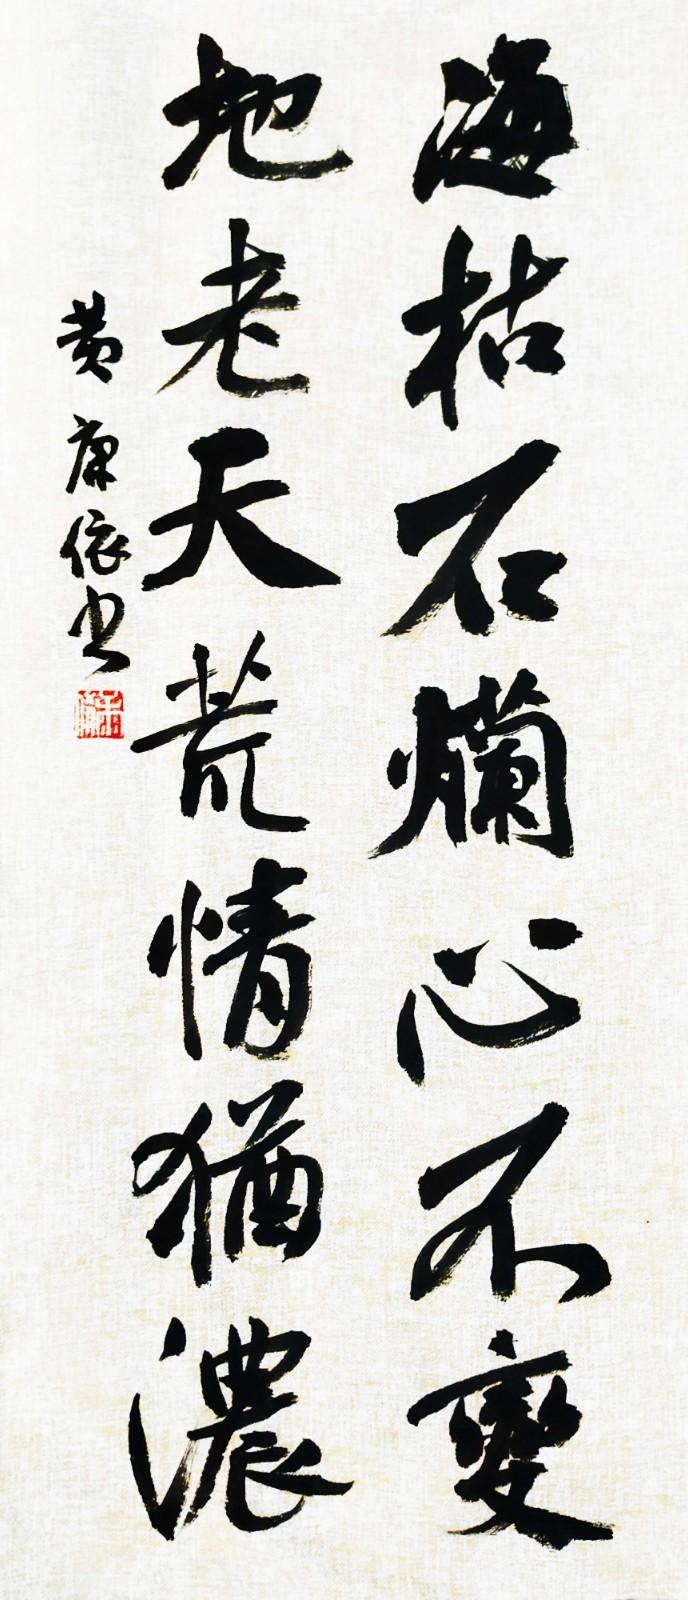 海枯石爛心不變
地老天荒情猶濃
黄康依书